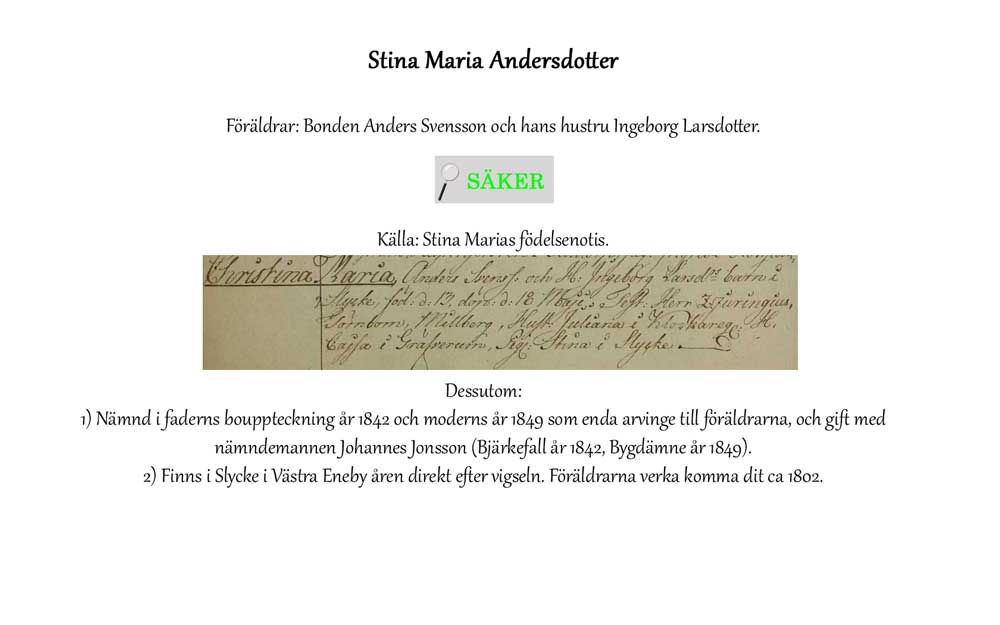 Stina Maria Andersdotter
Föräldrar: Bonden Anders Svensson och hans hustru Ingeborg Larsdotter.
SÄKER
Källa: Stina Marias födelsenotis.
Christina Maria, Anders Svenss. och H: Ingeborg Larsdrs barn i
Slycke, föd. d: 13, döpt. d: 18 Maji. Test: Herr
Törnbom, Millberg, Hust: Juliana i Klockareg. H.
Cajsa i Gräfverum, Pig: Stina i Slycke.
Dessutom:
1) Nämnd i faderns bouppteckning år 1842 och moderns år 1849 som enda arvinge till föräldrarna, och gift med
nämndemannen Johannes Jonsson (Bjärkefall år 1842, Bygdämne år 1849).
2) Finns i Slycke i Västra Eneby åren direkt efter vigseln. Föräldrarna verka komma dit ca 1802.